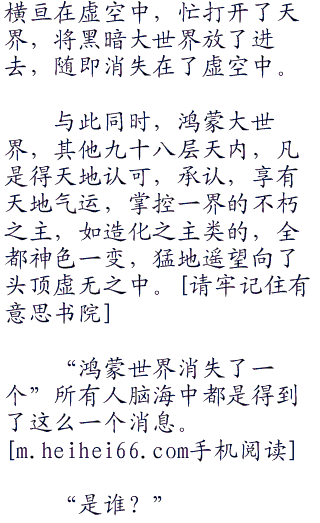 横亘在虚空中，忙打开了天
界，将黑暗大世界放了进
去，随即消失在了虚空中。
与此同时，鸿蒙大世
界，其他九十八层天内，凡
是得天地认可，承认，享有
天地气运，掌控一界的不朽
之主，如造化之主类的，全
都神色一变，猛地遥望向了
头顶虚无之中。[请牢记住有
意思书院]
“鸿蒙世界消失了一
个”所有人脑海中都是得到
了这么一个消息。
[m.heihei66.com手机阅读]
“是谁？”